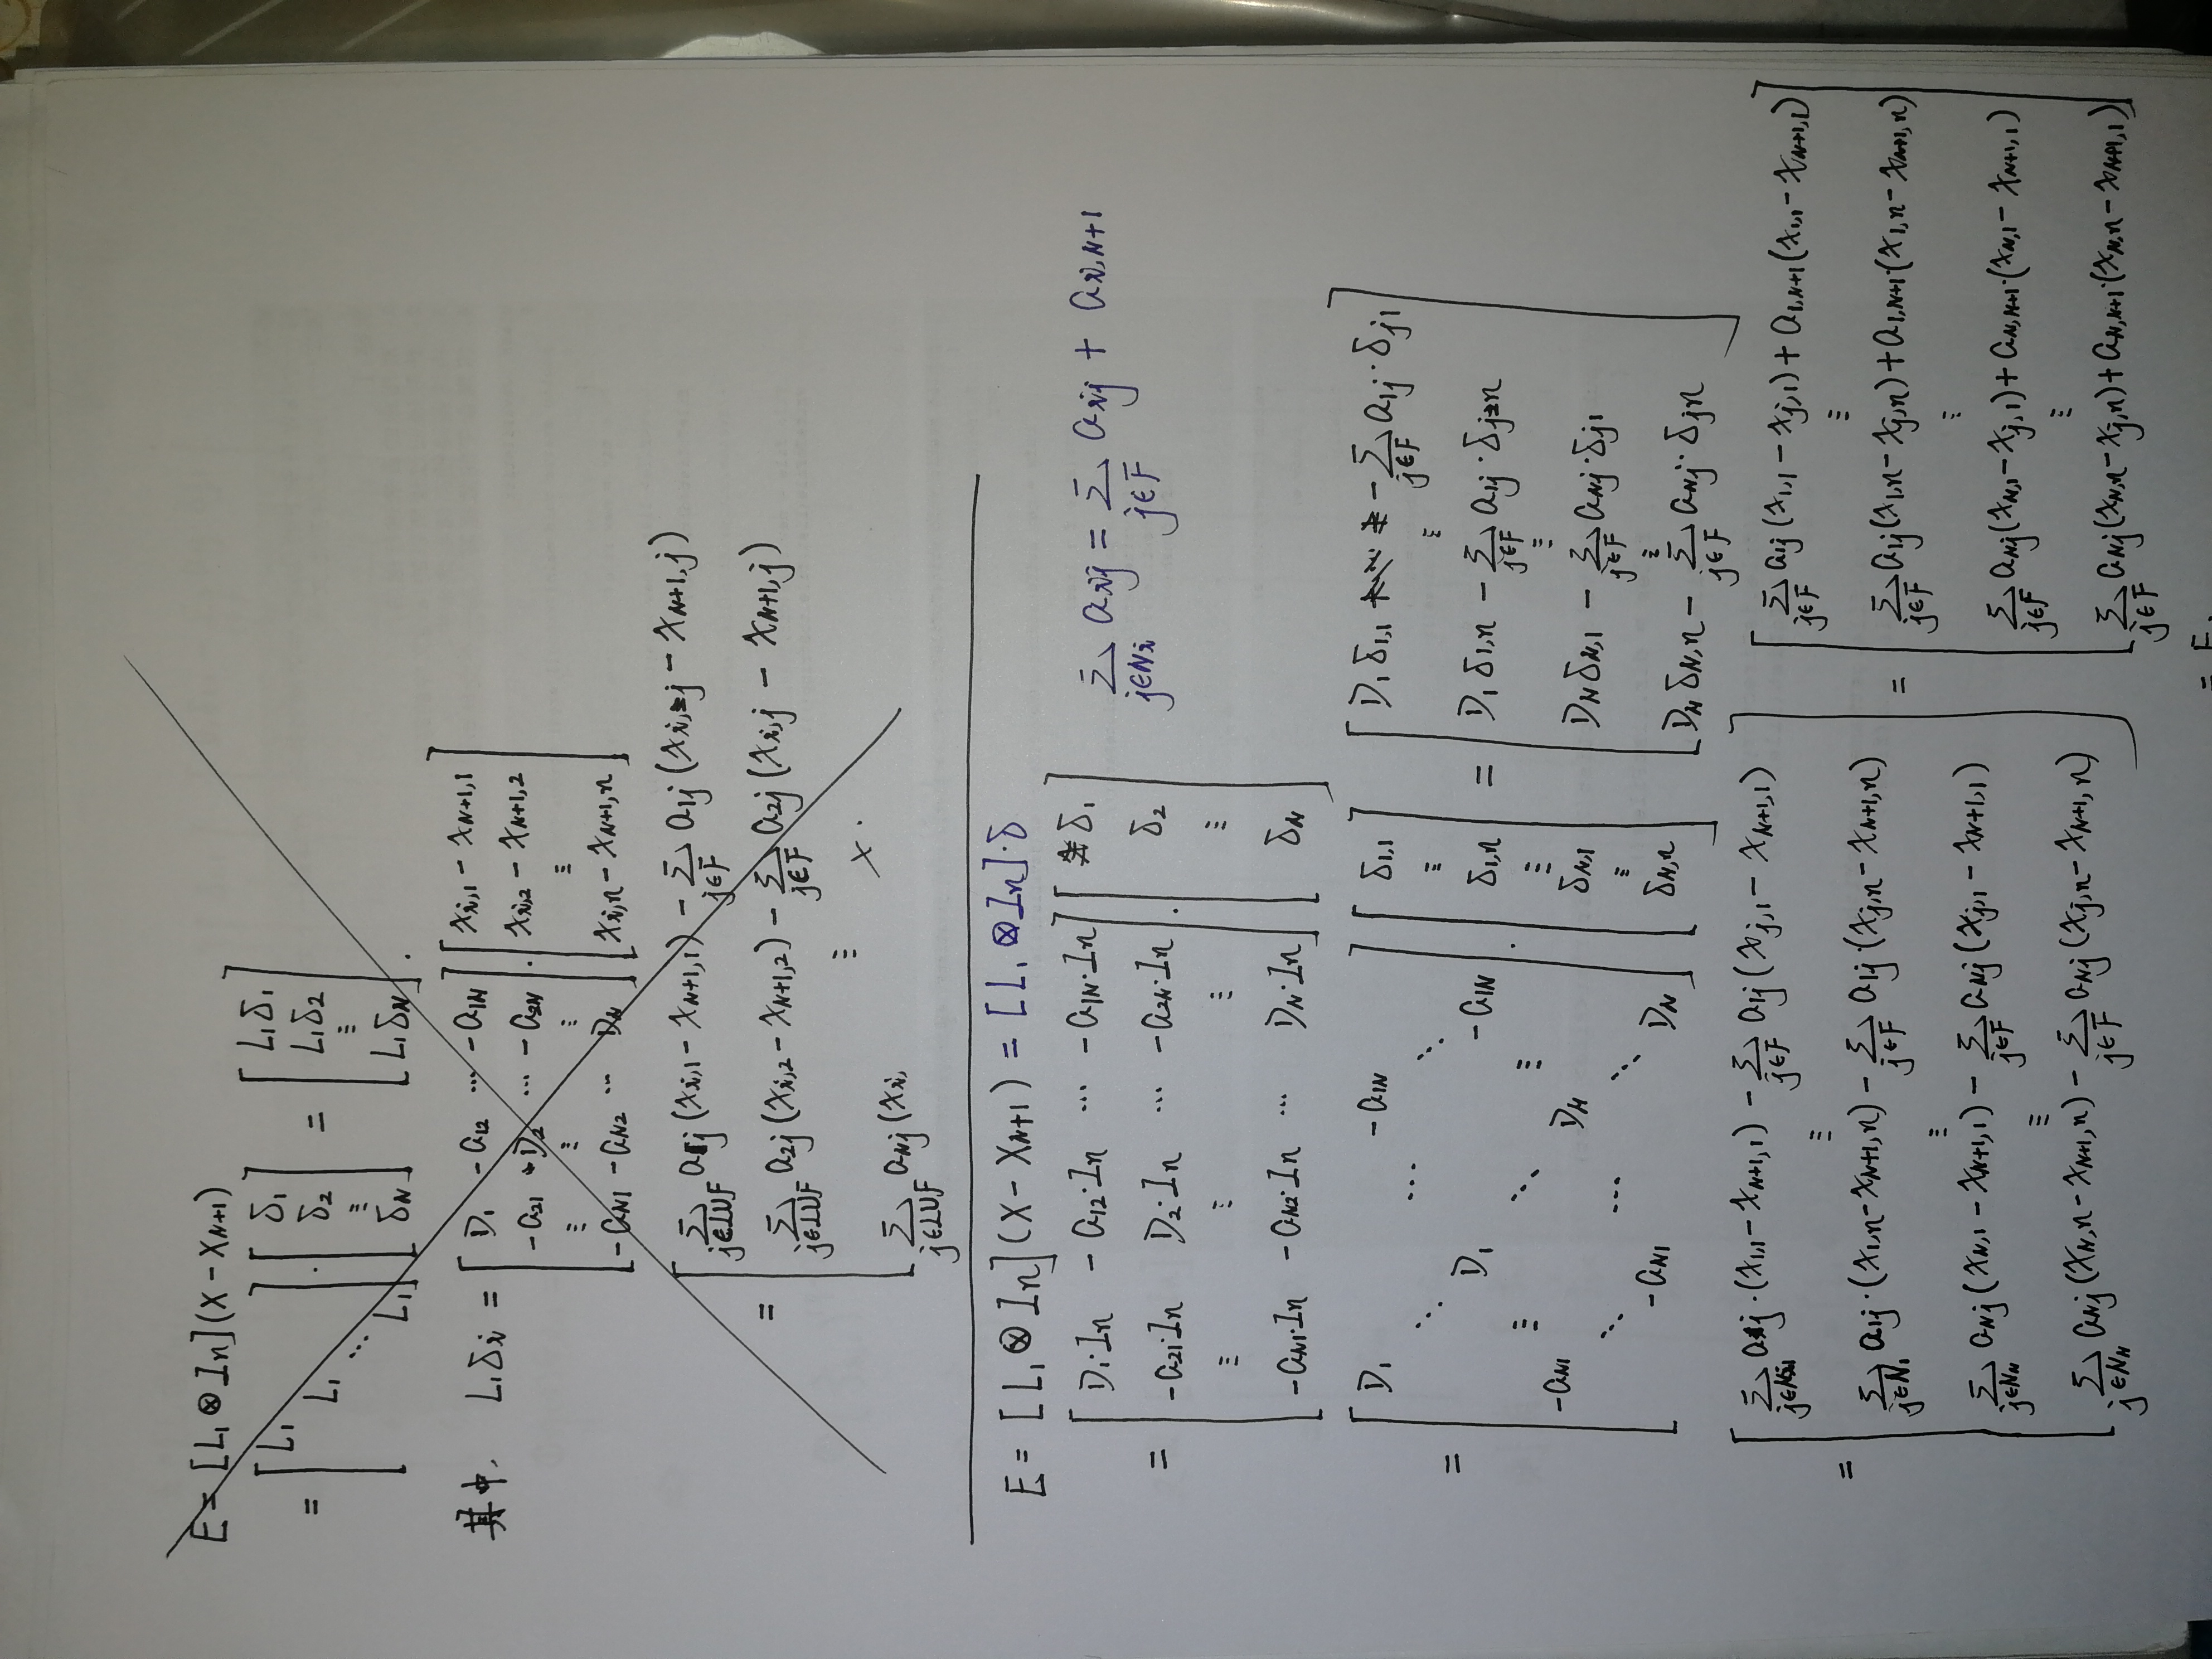 E = [L₁ ⊗ Iₙ](X − X_{N+1})
= [L₁ L₁ ⋱ L₁] · [δ₁ δ₂ ⋮ δ_N] = [L₁δ₁ L₁δ₂ ⋮ L₁δ_N].
其中, L₁δᵢ = [D₁ −a₁₂ ⋯ −a_{1N}
−a₂₁ D₂ ⋯ −a_{2N}
⋮ ⋮ ⋮
−a_{N1} −a_{N2} ⋯ D_N] · [x_{i,1} − x_{N+1,1}
x_{i,2} − x_{N+1,2}
⋮
x_{i,n} − x_{N+1,n}]
= [Σ_{j∈LUF} a_{1j}(x_{i,1} − x_{N+1,1}) − Σ_{j∈F} a_{1j}(x_{i,j} − x_{N+1,j})
Σ_{j∈LUF} a_{2j}(x_{i,2} − x_{N+1,2}) − Σ_{j∈F} a_{2j}(x_{i,j} − x_{N+1,j})
⋮ ×.
Σ_{j∈LUF} a_{Nj}(x_{i,
E = [L₁ ⊗ Iₙ](X − X_{N+1}) = [L₁ ⊗ Iₙ]·δ
= [D₁·Iₙ −a₁₂·Iₙ ⋯ −a_{1N}·Iₙ
−a₂₁·Iₙ D₂·Iₙ ⋯ −a_{2N}·Iₙ
⋮ ⋮ ⋮
−a_{N1}·Iₙ −a_{N2}·Iₙ ⋯ D_N·Iₙ] · [δ₁ δ₂ ⋮ δ_N]
Σ_{j∈Nᵢ} a_{ij} = Σ_{j∈F} a_{ij} + a_{i,N+1}
= [D₁ −a_{1N}
⋱ ⋯ ⋱
D₁ −a_{1N}
⋮ ⋱ ⋮
−a_{N1} D_N
⋱ ⋯ ⋱
−a_{N1} D_N] · [δ_{1,1} ⋮ δ_{1,n} ⋮ δ_{N,1} ⋮ δ_{N,n}]
= [D₁δ_{1,1} − Σ_{j∈F} a_{1j}·δ_{j1}
⋮
D₁δ_{1,n} − Σ_{j∈F} a_{1j}·δ_{jn}
⋮
D_Nδ_{N,1} − Σ_{j∈F} a_{Nj}·δ_{j1}
⋮
D_Nδ_{N,n} − Σ_{j∈F} a_{Nj}·δ_{jn}]
= [Σ_{j∈N₁} a_{1j}·(x_{1,1} − x_{N+1,1}) − Σ_{j∈F} a_{1j}(x_{j,1} − x_{N+1,1})
⋮
Σ_{j∈N₁} a_{1j}·(x_{1,n} − x_{N+1,n}) − Σ_{j∈F} a_{1j}·(x_{j,n} − x_{N+1,n})
⋮
Σ_{j∈N_N} a_{Nj}(x_{N,1} − x_{N+1,1}) − Σ_{j∈F} a_{Nj}(x_{j,1} − x_{N+1,1})
⋮
Σ_{j∈N_N} a_{Nj}(x_{N,n} − x_{N+1,n}) − Σ_{j∈F} a_{Nj}(x_{j,n} − x_{N+1,n})]
= [Σ_{j∈F} a_{1j}(x_{1,1} − x_{j,1}) + a_{1,N+1}(x_{1,1} − x_{N+1,1})
⋮
Σ_{j∈F} a_{1j}(x_{1,n} − x_{j,n}) + a_{1,N+1}·(x_{1,n} − x_{N+1,n})
⋮
Σ_{j∈F} a_{Nj}(x_{N,1} − x_{j,1}) + a_{N,N+1}·(x_{N,1} − x_{N+1,1})
⋮
Σ_{j∈F} a_{Nj}(x_{N,n} − x_{j,n}) + a_{N,N+1}·(x_{N,n} − x_{N+1,1})]